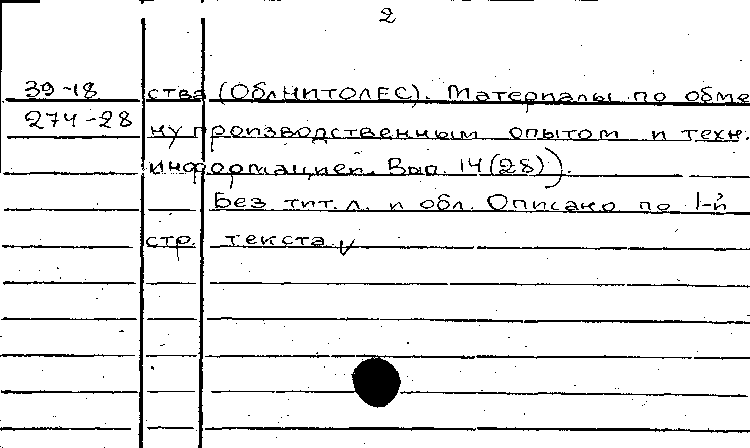 2
39-18 ства (ОблНИТОЛЕС). Материалы по обме
274-28 ну производственным опытом и техн.
информацией. Вып. 14(28)).
Без тит. л. и обл. Описано по 1-й
стр. текста